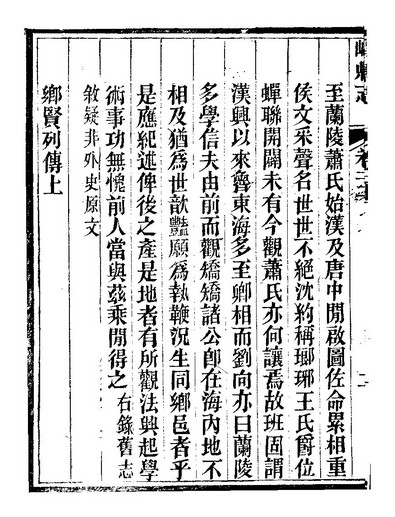 至蘭陵蕭氏始漢及唐中閒啟圖佐命累相重
侯文采聲名世世不絕沈約稱瑯琊王氏爵位
蟬聯開闢未有今觀蕭氏亦何讓焉故班固謂
漢興以來魯東海多至卿相而劉向亦曰蘭陵
多學信夫由前而觀矯矯諸公卽在海內地不
相及猶爲世歆豔願爲執鞭況生同鄉邑者乎
是應紀述俾後之產是地者有所觀法興起學
術事功無愧前人當與茲乘閒得之右錄舊志
敘疑非外史原文
鄉賢列傳上